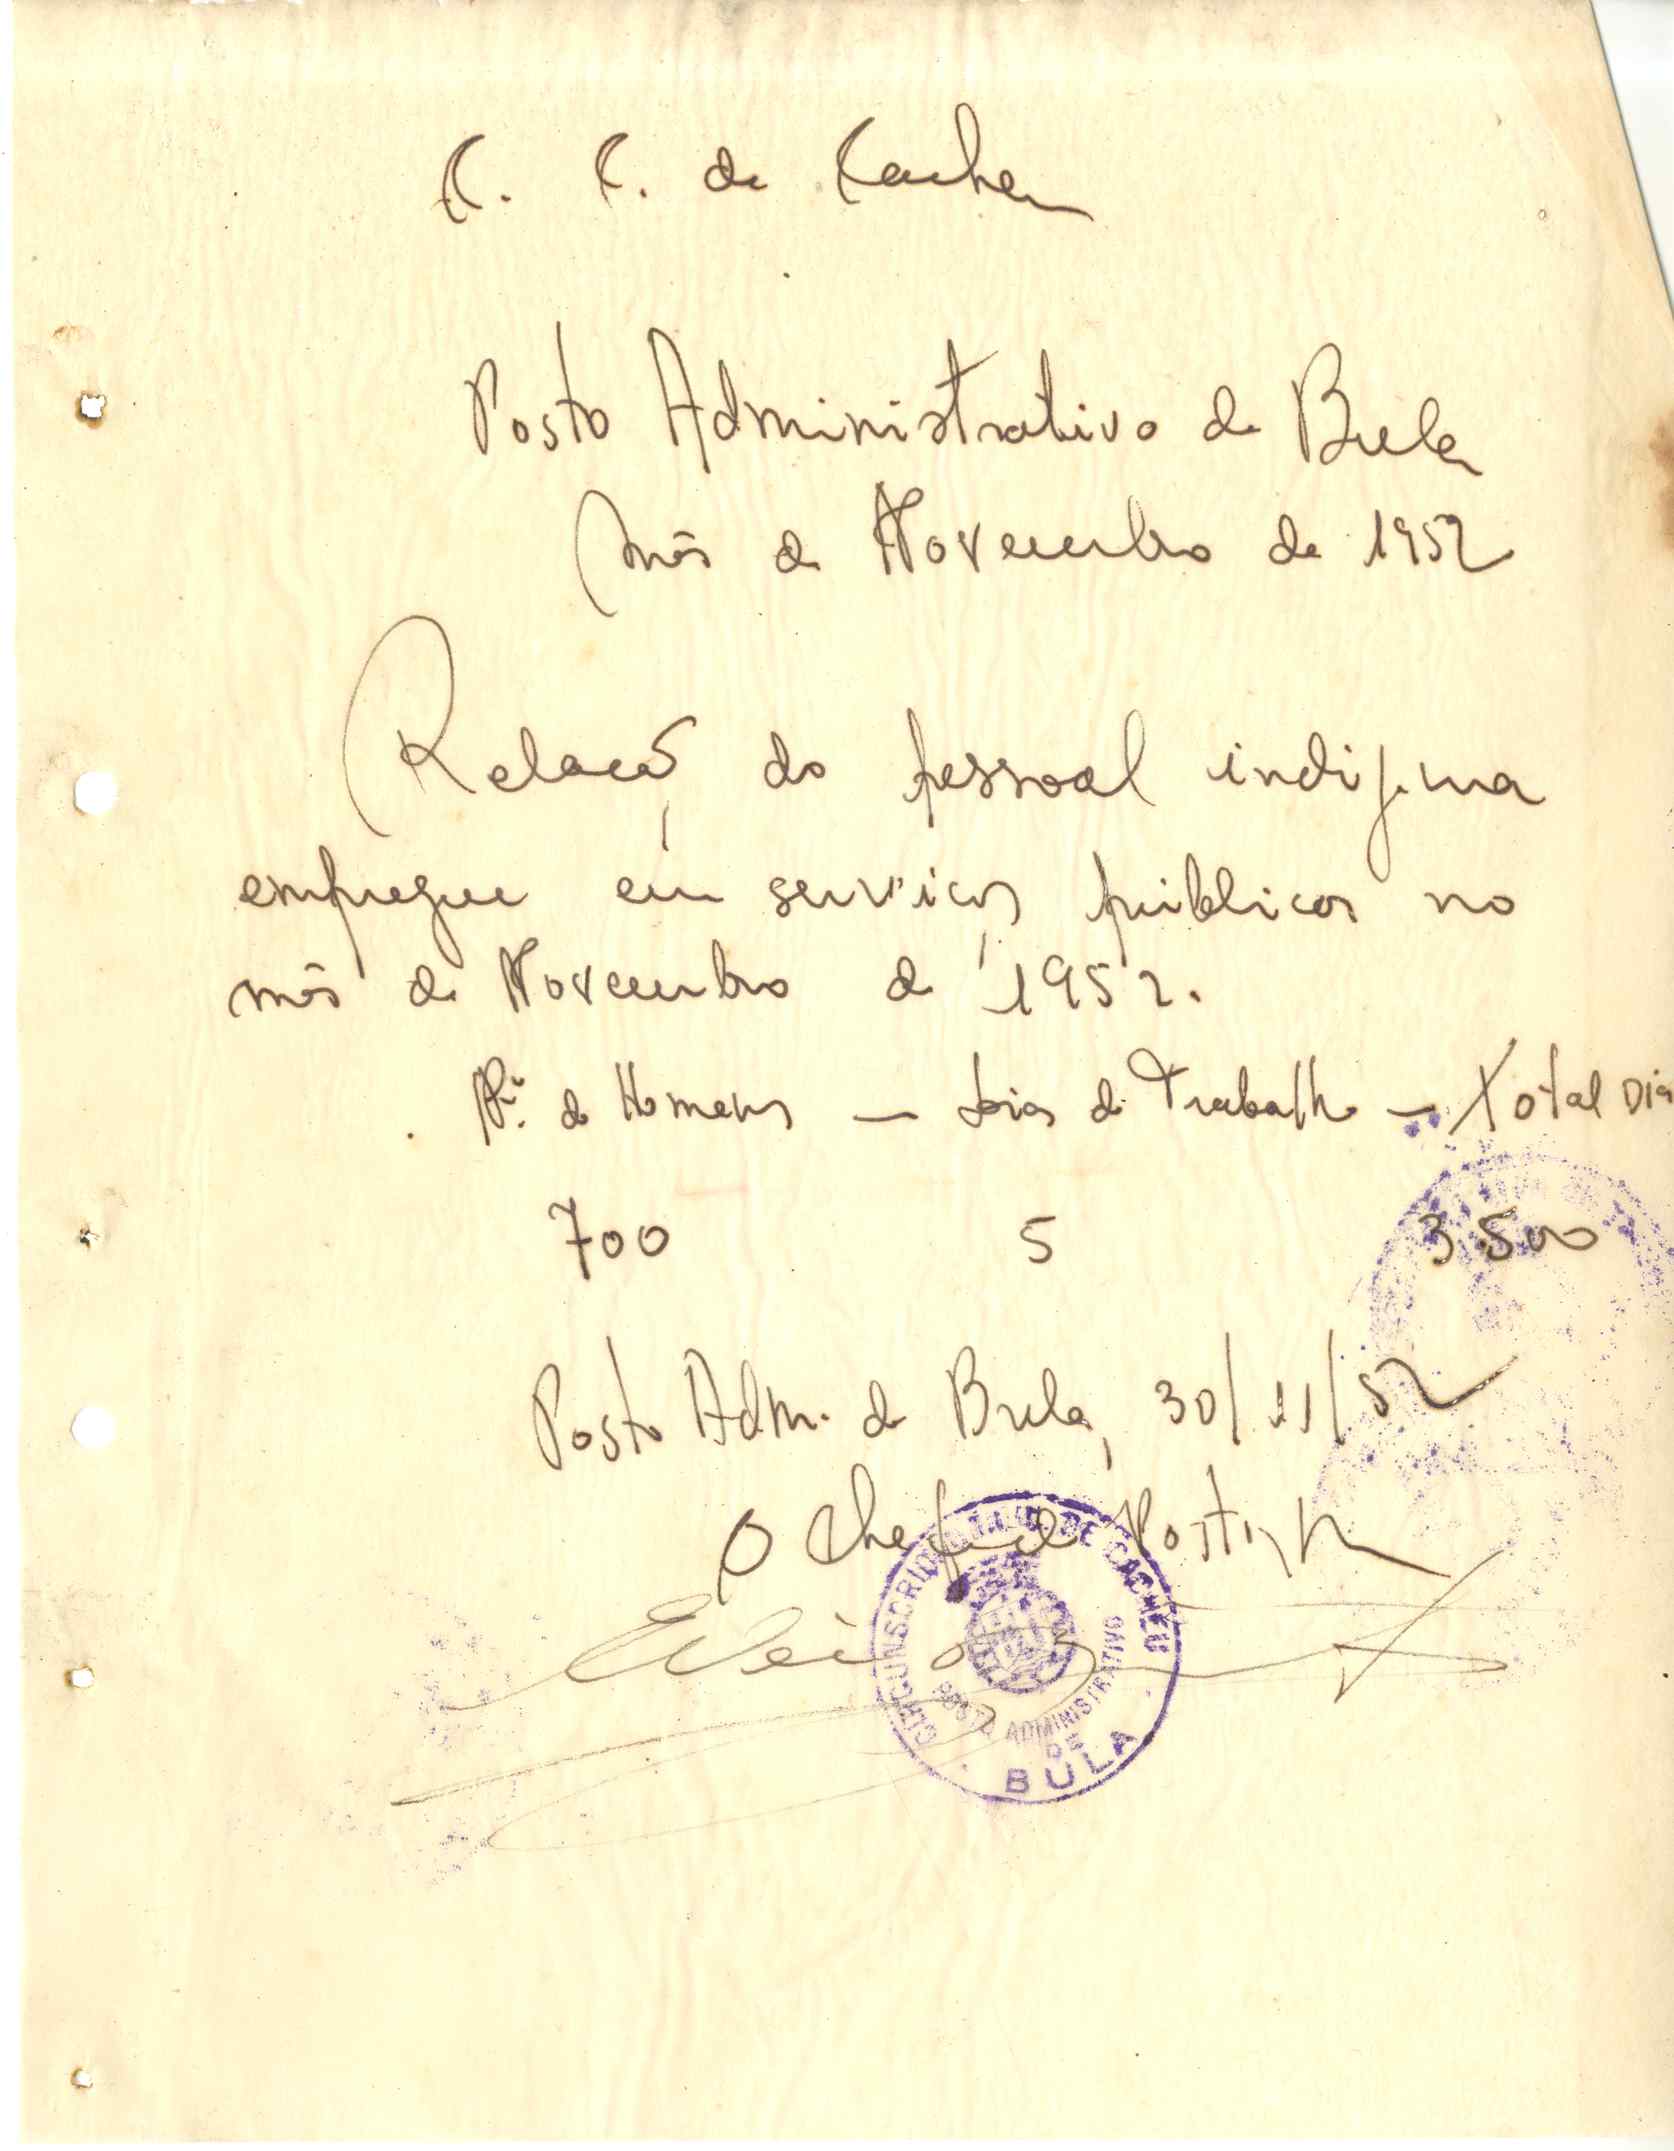 C. C. de Cacheu
Posto Administrativo de Bula
Mês de Novembro de 1952
Relação do pessoal indígena
empregue em serviços públicos no
mês de Novembro de 1952.
Nº. de Homens — Dias de Trabalho — Total Dia
700 5 3.500
Posto Adm. de Bula, 30/11/52
O Chefe de Posto,
CIRCUNSCRIÇÃO CIVIL DE CACHEU
POSTO ADMINISTRATIVO
DE
BULA